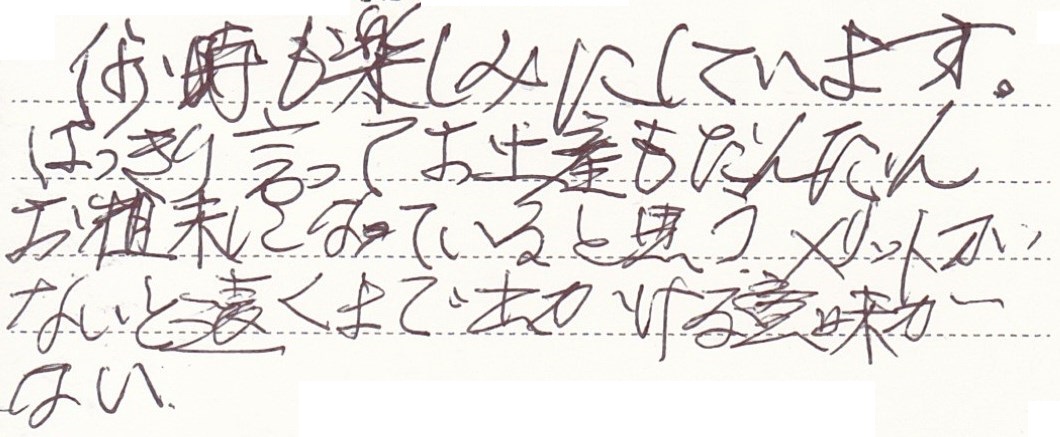 何時も楽しみにしています。
はっきり言ってお土産もだんだん
お粗末になっていると思う メリットが
ないと遠くまで出かける意味が
ない.